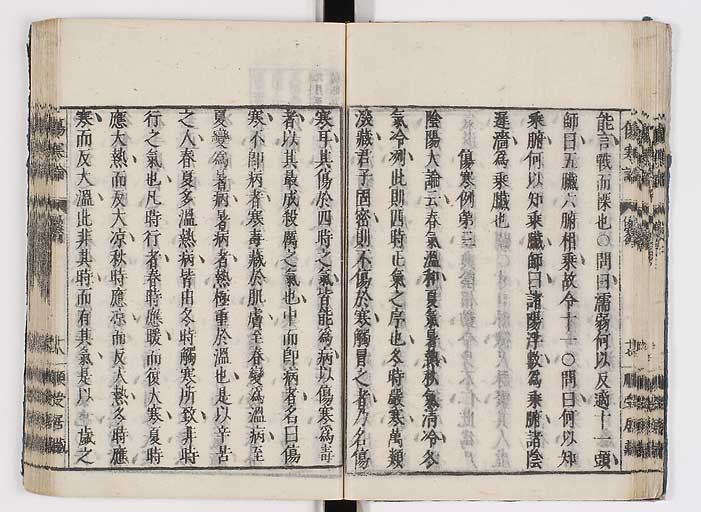 能言戰而慄也〇問曰濡弱何以反適十一頭
師曰五臟六腑相乘故令十一〇問曰何以知
乘腑何以知乘臟師曰諸陽浮數為乘腑諸陰
遲濇為乘臟也
傷寒例第三
陰陽大論云春氣溫和夏氣暑熱秋氣清冷冬
氣冷冽此則四時正氣之序也冬時嚴寒萬類
深藏君子固密則不傷於寒觸冒之者乃名傷
寒耳其傷於四時之氣皆能為病以傷寒為毒
者以其最成殺厲之氣也中而即病者名曰傷
寒不即病者寒毒藏於肌膚至春變為溫病至
夏變為暑病暑病者熱極重於溫也是以辛苦
之人春夏多溫熱病皆由冬時觸寒所致非時
行之氣也凡時行者春時應暖而復大寒夏時
應大熱而反大涼秋時應涼而反大熱冬時應
寒而反大溫此非其時而有其氣是以　歲之
傷寒論
傷寒論